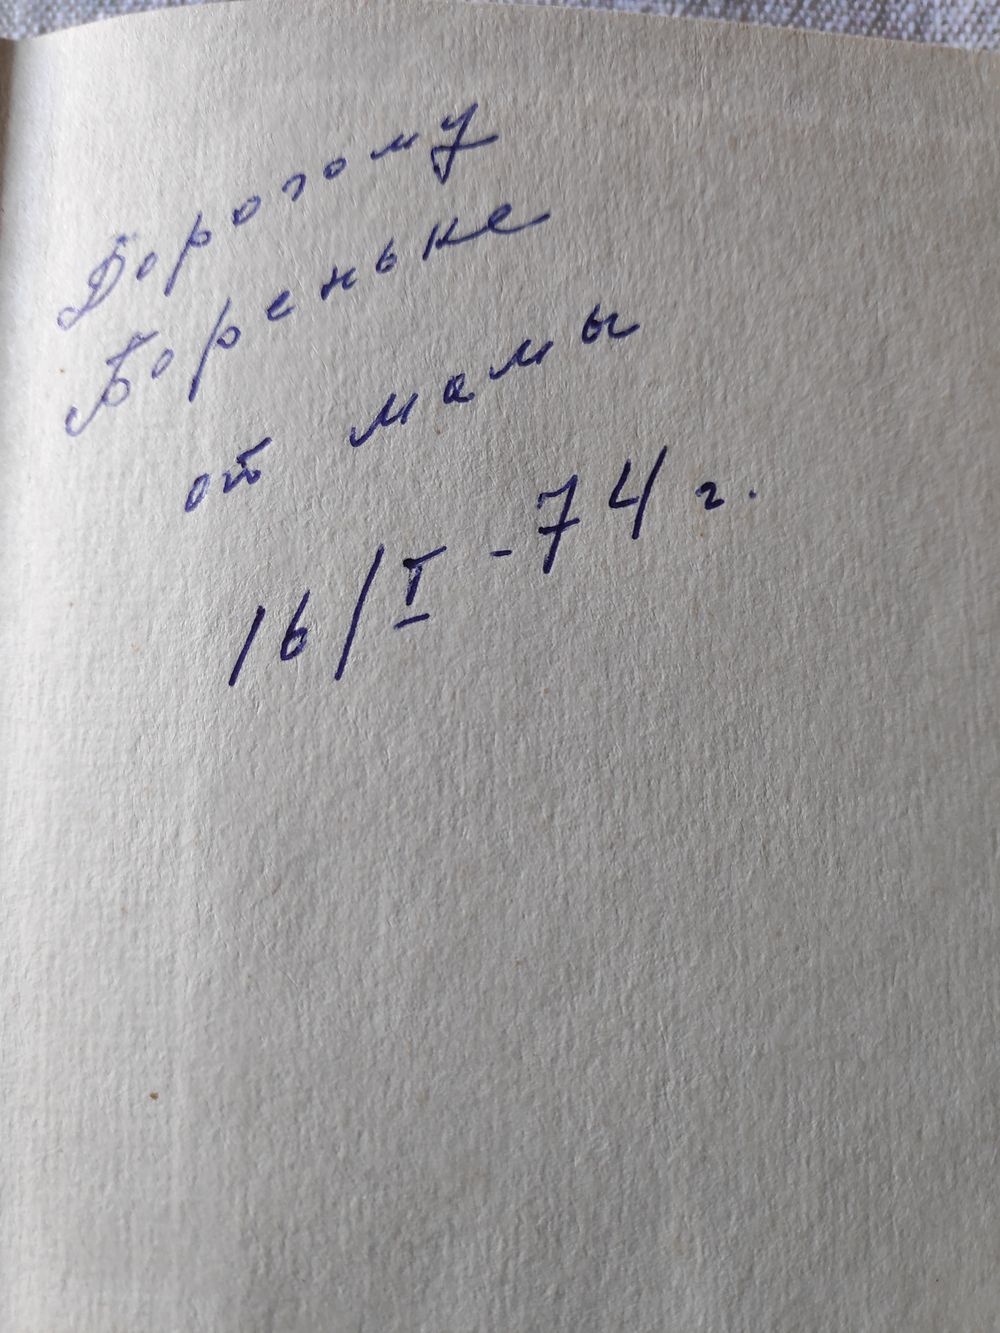 Дорогому
Бореньке
от мамы
16/I-74 г.